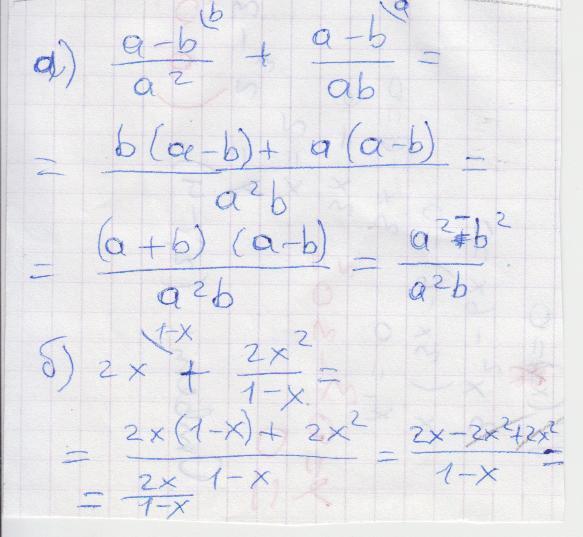 а) (a-b)/a² (b + (a-b)/ab (a =
= (b(a-b)+ a(a-b))/a²b =
= ((a+b) (a-b))/a²b = (a²-b²)/a²b
б) 2x (1-x + 2x²/(1-x) =
= (2x(1-x)+ 2x²)/(1-x) = (2x-2x²+2x²)/(1-x) =
= 2x/(1-x)